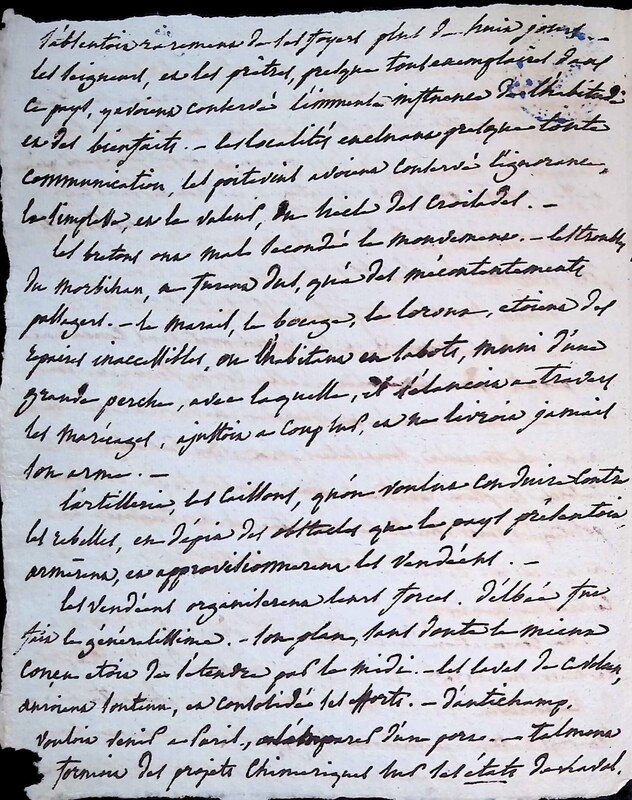 s'absentoit rarement de ses foyers plus de huit jours. –
les seigneurs, et les prêtres, presque tous exemplaires dans
ce pays, y avoient conservé l'éminente influence de l'habitude
et des bienfaits. – les localités excluant presque toute
communication, les poitevins avoient conservé l'ignorance,
la simplesse, et la valeur, du siècle des croisades. –
les bretons ont mal secondé le mouvement. – les troubles
du morbihan, ne furent dus, qu'à des mécontentements
passagers. – le marais, le bocage, le loroux, étoient des
repaires inaccessibles, où l'habitant en sabots, muni d'une
grande perche, avec laquelle, il s'élançoit à travers
les marécages, ajustoit à coup sûr, et ne livroit jamais
son arme. –
l'artillerie, les caissons, qu'on voulut conduire contre
les rebelles, en dépit des obstacles que le pays présentoit,
armèrent, et approvisionnèrent les vendéens. –
les vendéens organisèrent leurs forces. d'élbée fut
fait le généralissime. – son plan, sans doute le mieux
conçu étoit de s'étendre par le midi. – les
auroient soutenu, et consolidé ses efforts. – d'autichamp,
vouloit venir à paris, d'un porse. – talmont
formoit des projets chimériques sur ses états de laval.